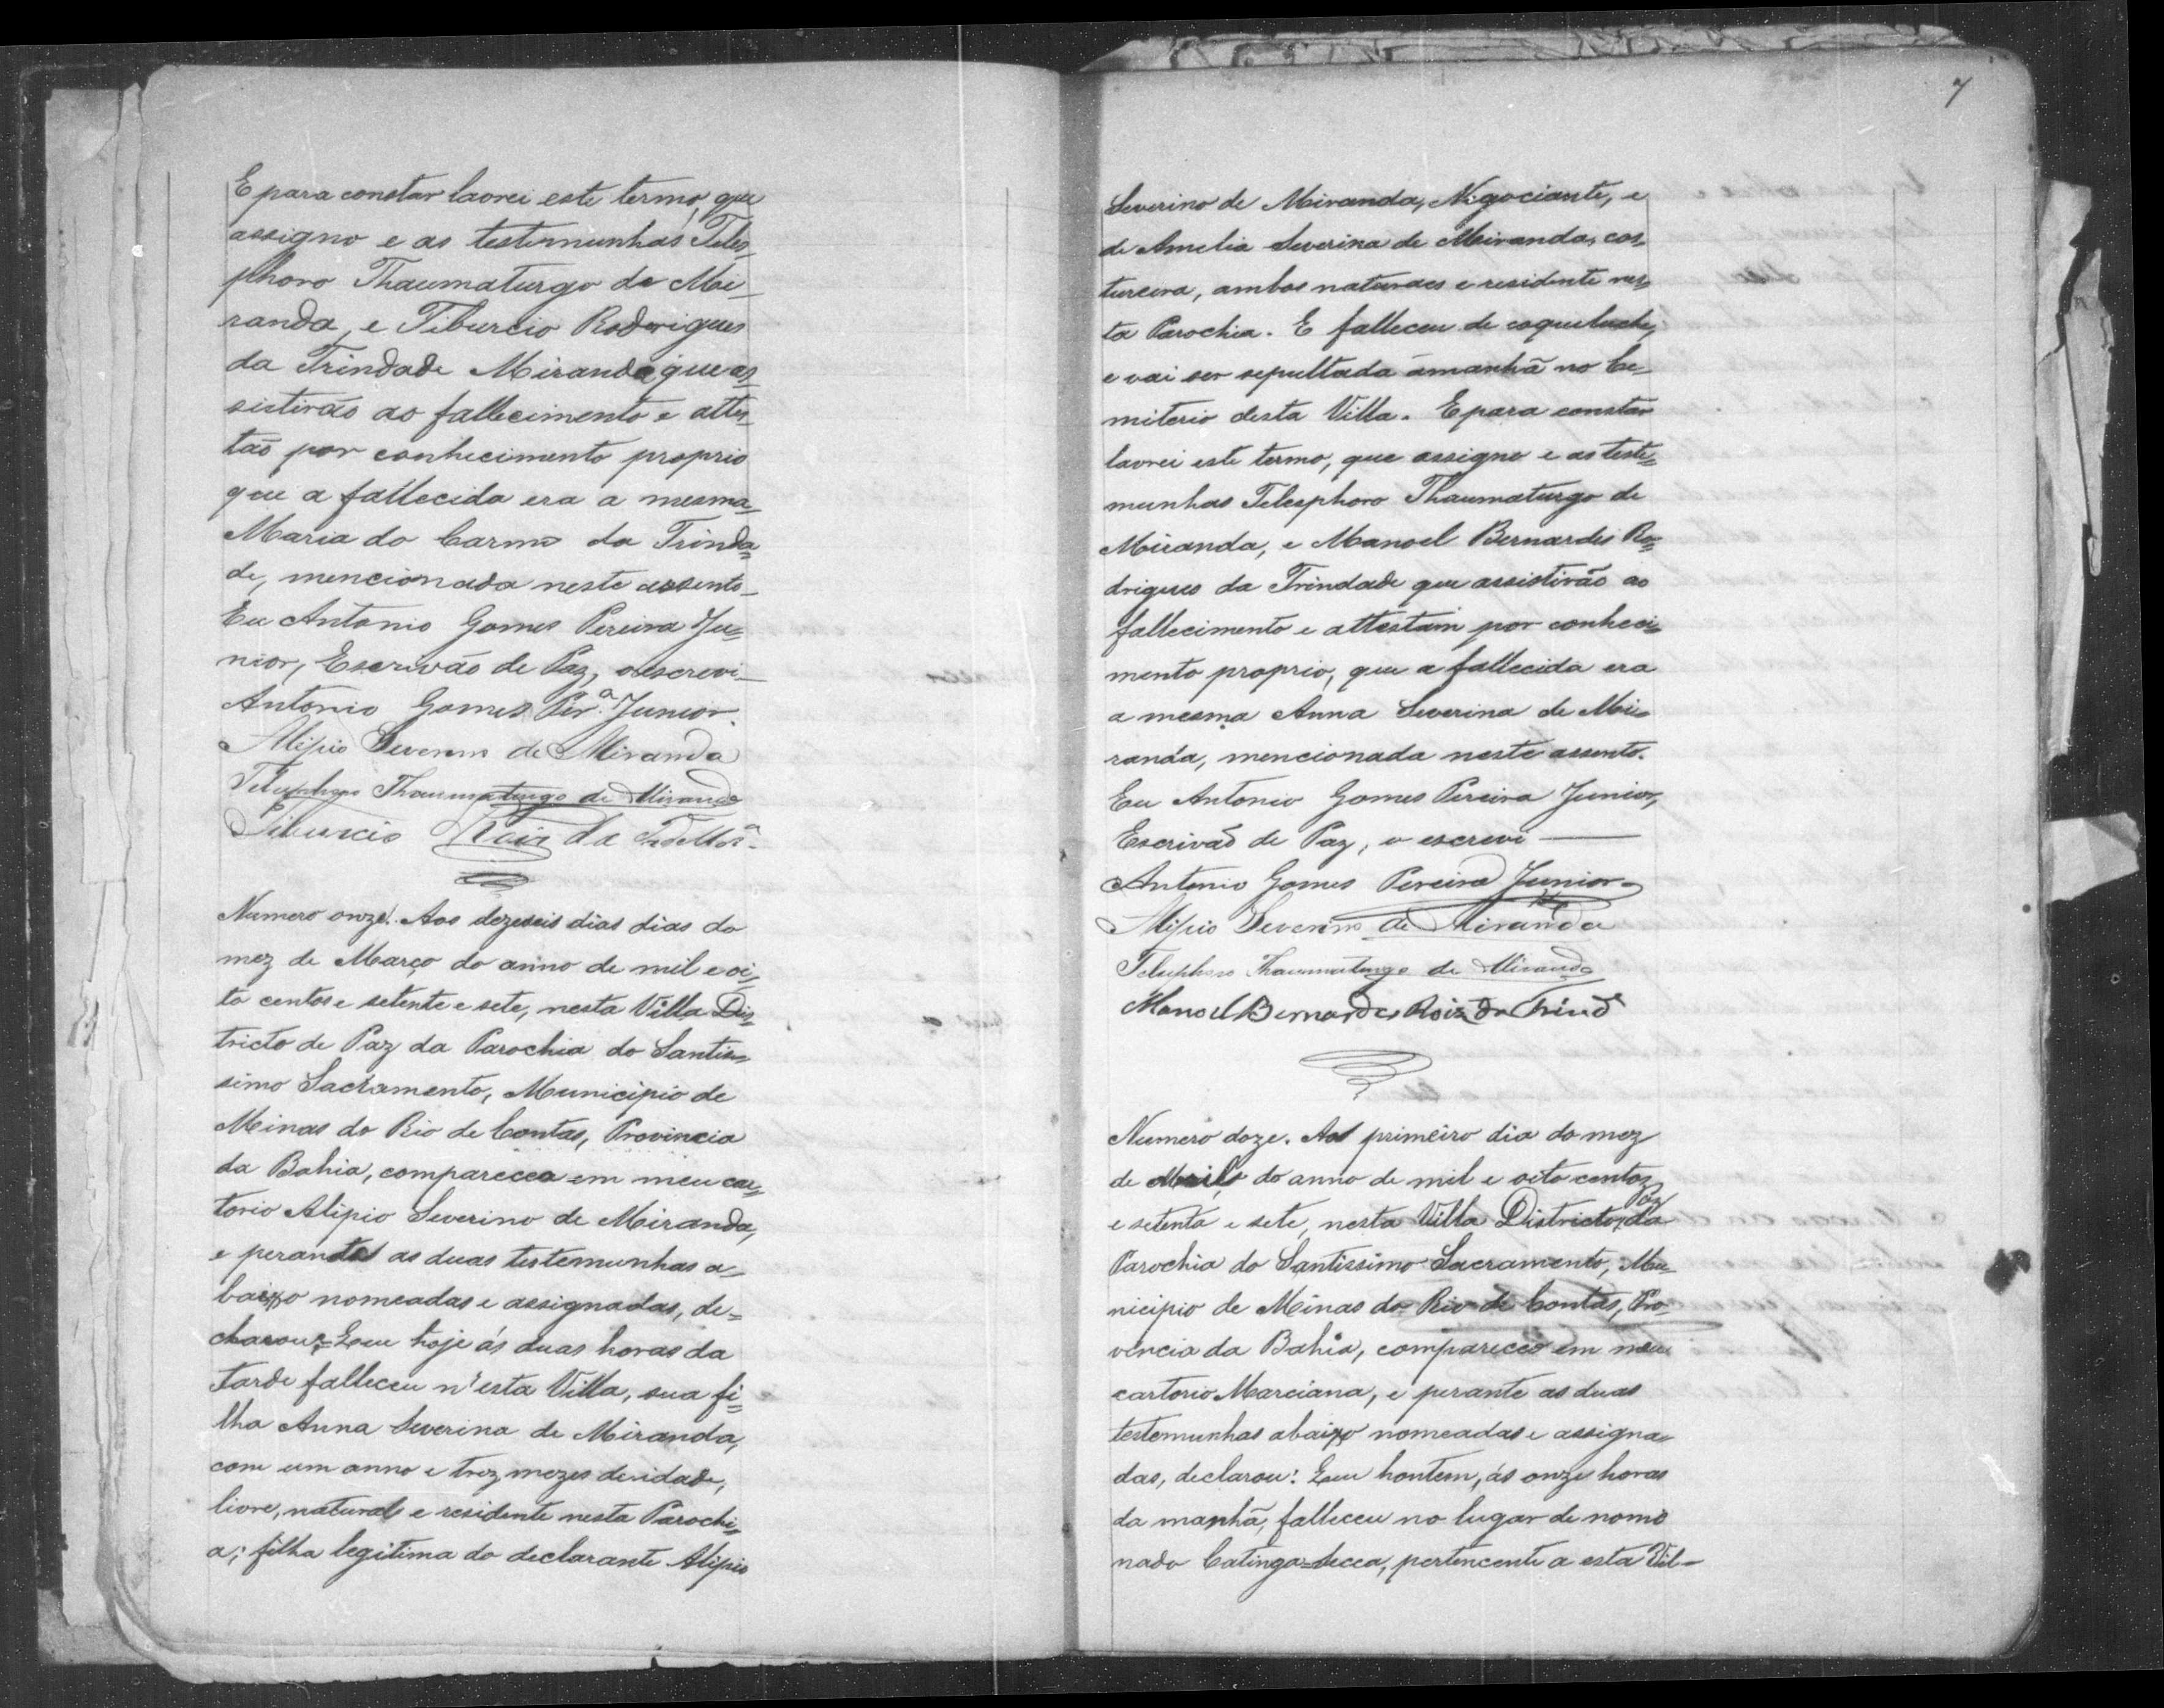 E para constar lavrei este termo, que
assigno e as testemunhas Teles_
phoro Thaumaturgo de Mi_
randa, e Tiburcio Rodrigues
da Trindade Miranda, que as_
sistirão ao fallecimento e attes_
tão por conhecimento proprio
que a fallecida era a mesma_
Maria do Carmo da Trinda=
de, mencionada neste assento_
Eu Antonio Gomes Pereira Ju=
nior, Escrivão de Paz, o escrevi_
Antonio Gomes Per.ª Junior.
Alipio Severino de Miranda
Telesphoro Thaumaturgo de Miranda
Tiburcio Roiz da
Numero onze. Aos dezeseis dias dias do
mez de Março do anno de mil e oi_
to centos e setente e sete, nesta Villa Dis_
tricto de Paz da Parochia do Santis_
simo Sacramento, Municipio de
Minas do Rio de Contas, Provincia
da Bahia, compareceo em meu car_
torio Alipio Severino de Miranda,
e perante as duas testemunhas a_
baixo nomeadas e assignadas, de=
clarou: Que hoje ás duas horas da
tarde falleceu n'esta Villa, sua fi=
lha Anna Severina de Miranda,
com um anno e trez mezes de idade,
livre, natural e residente nesta Parochi_
a; filha legitima do declarante Alipio
7
Severino de Miranda, Negociante, e
de Amelia Severina de Miranda, cos_
tureira, ambos naturaes e residente nes_
ta Parochia. E falleceu de coqueluche,
e vai ser sepultada ámanhã no Ce_
miterio desta Villa. E para constar
lavrei este termo, que assigno e as teste=
munhas Telesphoro Thaumaturgo de
Miranda, e Manoel Bernardes Ro=
drigues da Trindade que assistirão ao
fallecimento e attestam por conheci=
mento proprio, que a fallecida era
a mesma Anna Severina de Mi=
randa, mencionada neste assento.
Eu Antonio Gomes Pereira Junior,
Escrivaõ de Paz, o escrevi —
Antonio Gomes Pereira Junior
Alipio Severino de Miranda
Telesphoro Thaumaturgo de Miranda
Manoel Bernardes Roiz da Trind.e
Numero doze. Aos primeiro dia do mez
de do anno de mil e oito centos
e setenta e sete, nesta Villa Districto Paz da
Parochia do Santissimo Sacramento, Mu_
nicipio de Minas do Rio de Contas, Pro_
vincia da Bahia, compareceo em meu
cartorio Marciana, e perante as duas
testemunhas abaixo nomeadas e assigna_
das, declarou: Que hontem, ás onze horas
da manhã, falleceu no lugar de nomi
nado Catinga=Secca, pertencente a esta Vil_